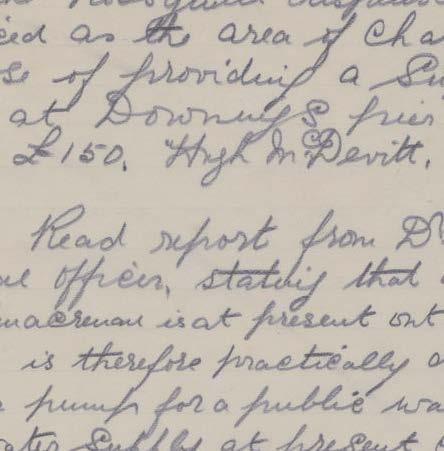 as the area of Cha
se of providing a Su
at Downings pier
£150. "Hugh McDevitt.
Read report from Dr
officer, stating that
macrenan is at present out
is therefore practically a
pump for a public wa
ater Supply at present